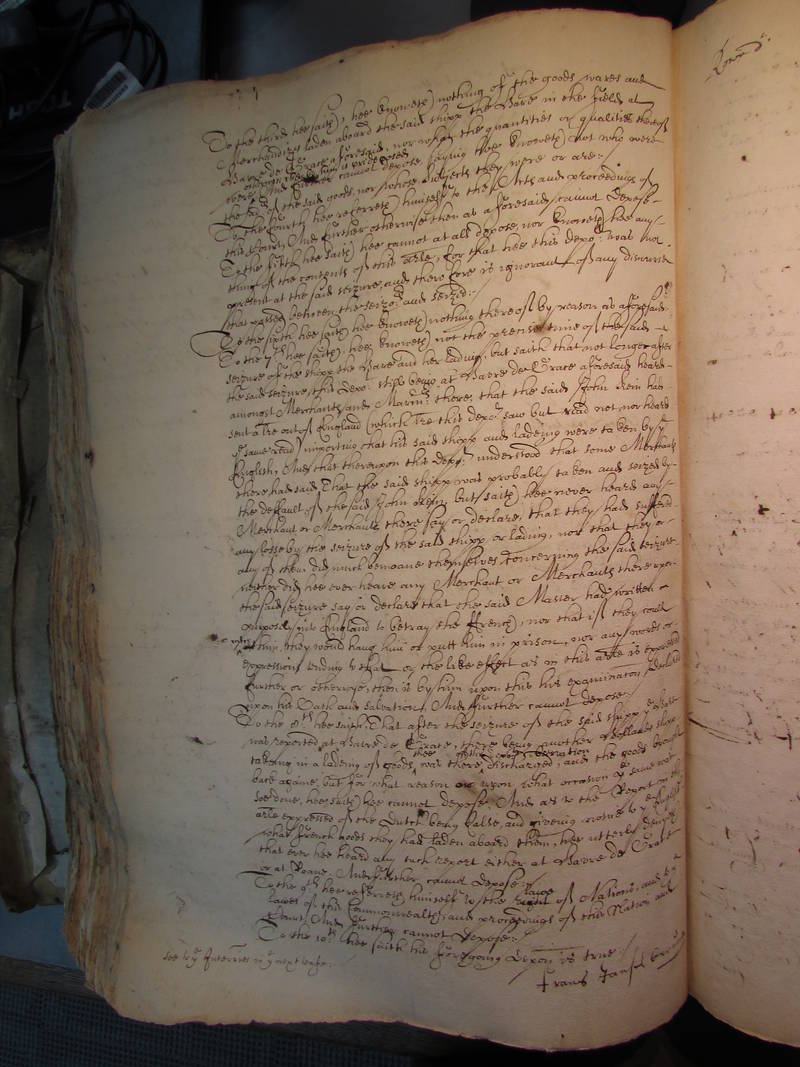 To the third hee saith, hee knoweth nothing of the goods wares and
Merchandizes laden aboard the said shipp the Hare in the field at
Havre de Grace aforesaid, nor what the quantities or qualities thereof
were And further cannot depose saving hee knoweth not who were
the said goods, nor whose subjects they were or are:/
To the fourth hee referreth himselfe to the Acts and proceedings of
this Court, And further otherwise then as aforesaid, cannot depose
To the fifth hee saith hee cannot at all depose, nor knoweth hee any
thing of the contents of this arle, for that hee this depot was not
present at the said seizure, and therefore is ignorant of any discourse
that passed between the seizors and seized:-
To the sixth hee saith hee knoweth nothing thereof by reason as aforesaid
To the 7th hee saith, hee knoweth not the precise time of the said
seizure of the shipp the Hare and her lading, but saith that not long after
the said seizure, this depot still being at Havre de Grace aforesaid heard
amongst Merchants and Marinrs there, that the said John Rein had
sent a lre out of England (which lre this depot saw but read not nor heard
ye same read) importing that his said shipp and lading were taken by ye
English, And that thereupon this depot understood that some Merchants
there had said That the said shipp was probably taken and seized by
the default of the said John Rein but saith hee never heard any
Merchant or Merchants there say or declare, that they had suffered
any losse by the seizure of the said shipp or lading, nor that they or
any of them did much bemoane themselves concerning the said seizure
neither did hee ever heare any Merchant or Merchants there upon
the said seizure say or declare that the said Master had written
purposely into England to betray the French, nor that if they could
him, they would hang him or putt him in prison, nor any words or
expressions tending to that or the like effect as in this arle is expressed
further or otherwise, then is by him upon this his examinacon declared
upon his Oath and salvation, And further cannot depose.
To the 8th hee saith, That after the seizure of the said shipp
was reported at Havre de Grace, there being another shipp
takeing in a lading of goods, was there discharged, and the goods brought
back againe, but for what reason or upon what occasion ye same was
soe done, hee saith hee cannot depose And as to the Report in this
arle expressed of the Dutch being false, and giveing notice to ye English
what French goods they had laden aboard them, hee utterly denyeth
that ever hee heard any such report either at Havre de Grace
or at Roane, And further cannot depose:/
To the 9th hee referreth himselfe to the lawe of Nations, and ye
lawes of this Commonwealth, and proceedings of the Nation and
Court And further cannot depose:/
To the 10th hee saith his foregoing depon is true:/
see ye Interries in ye next leafe.